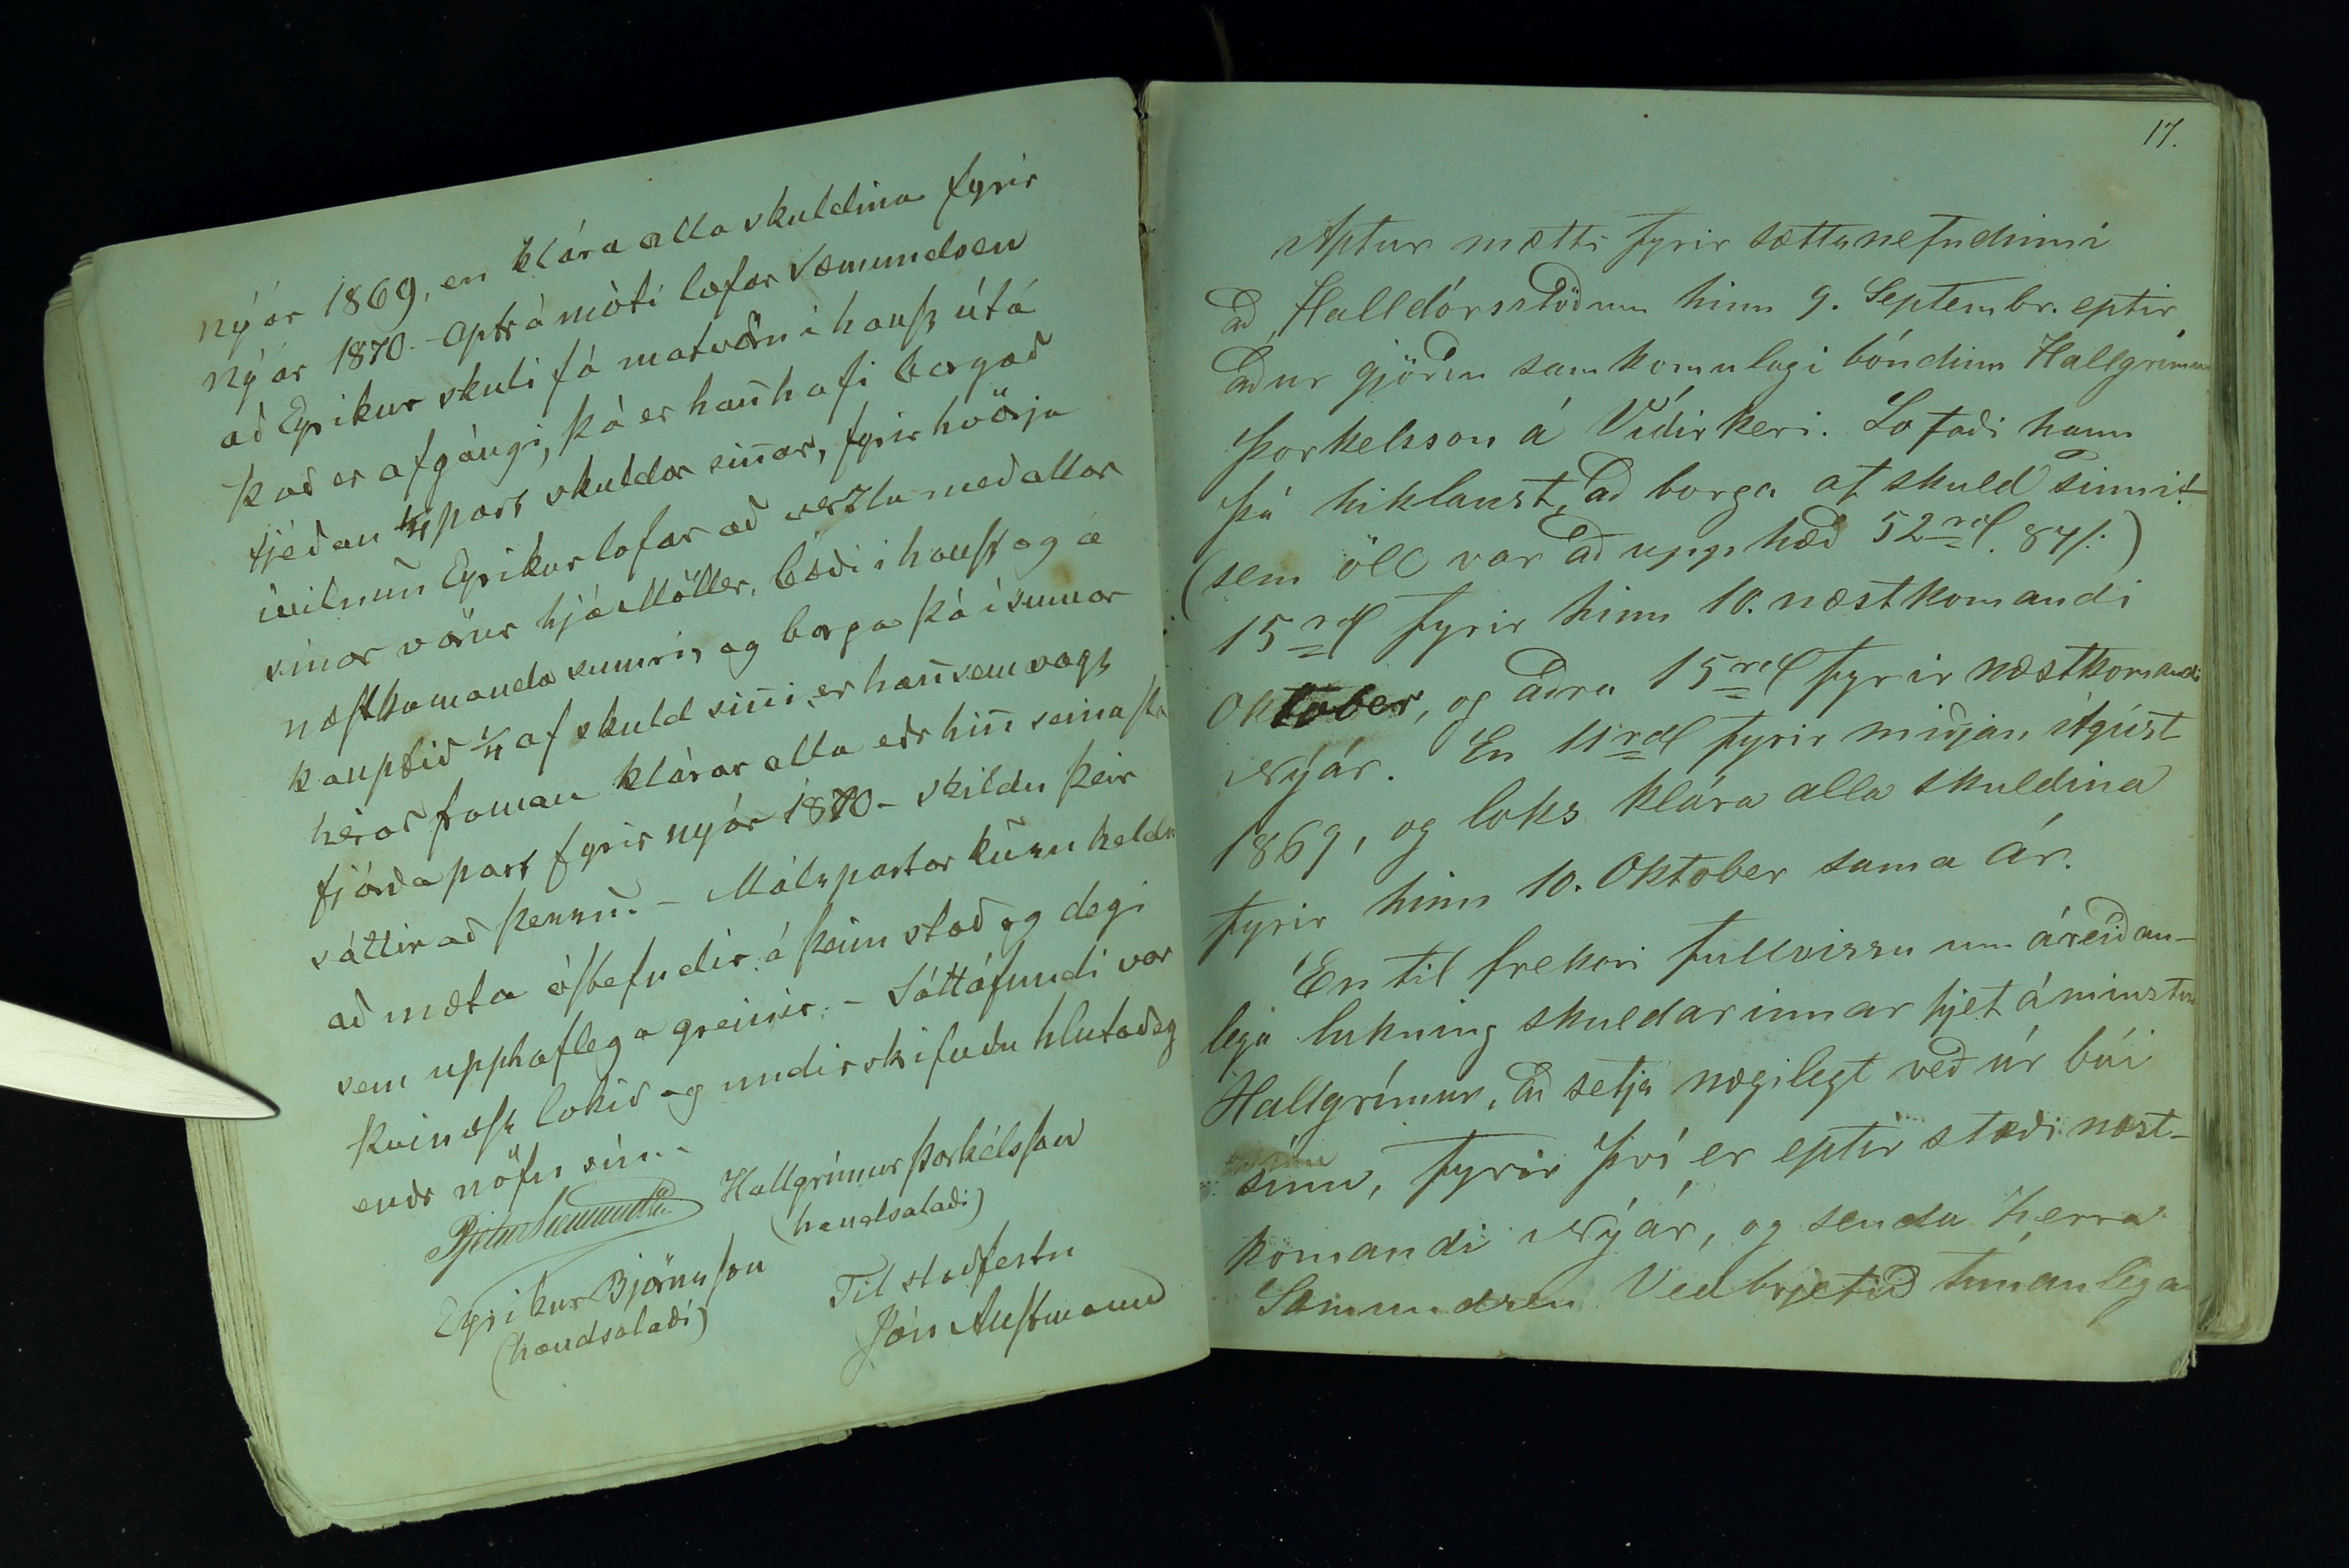 nýár 1869, en klára alla skuldina fyrir
nýár 1870. - Aptr á móti lofar Sæmundsen
að Eyrikur skuli fá matvöru í hauſt útá
það er afgángi, þá er hañ hafi borgað
tjeðan 1/4 part skuldar siñar, fyrir hvörja
ívilnuñ Eyrikur lofar að verzla með allar
sínar vörur hjá Möller, bæði i hauſt og á
næſtkomanda sumri, og borga þá í sumar
kauptið 1/4 af skuld siñi, er hañ sem sagt
héraðframan klárar alla eðr hiñ seinaſta
fjórða part fyrir nýár 1870 - skildu þeir
sáttir að þessu. - Málspartar kusu heldr
að mæta óſtefndir á þeim stað og degi
sem upphaflega greinir. - Sáttafundi var
þvínæſt lokið og undirskrifuðu hlutaðeig
endr nöfn sín. -
Pjetur Sæmundsen Hallgrímur Þorkélsſon
(handsalaði)
Eyrikur Björnsſon Til staðfestu
(handsalaði) Jón Auſtmann
17.
Aptur mætti fyrir sættanefndinni
að Halldórsstöðum hinn 9. Septembr. eptir
áður gjörðu samkomulagi bóndinn Hallgrímur
Þorkelsson á Víðirkeri. Lofaði hann
þá hiklaust, að borga af skuld sinni
(sem öll var að upphæð 52 rd. 87 /:)
15 rd fyrir hinn 10. næstkomandi
Oktober, og aðra 15 rd fyrir næstkomandi
Nýár. En 11 rd fyrir miðjan Ágúst
1869, og loks klára alla skuldina
fyrir hinn 10. Oktober sama ár.
En til frekari fullvissu um áreiðan-
lega lukning skuldarinnar hjet áminstur
Hallgrímur, að setja nægilegt veð úr búi
sínu, fyrir því er eptir stæði næst-
komandi Nýár, og senda herra
Sæmundsen Veðbrjefið tímanlega